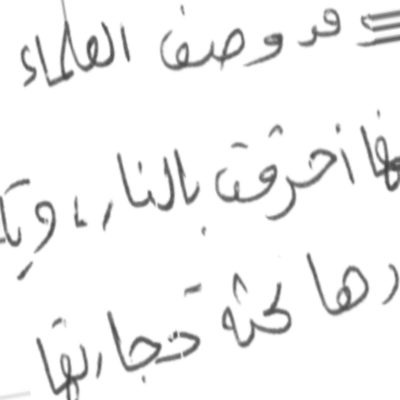 قد وصف العلماء
ها احرقت بالنار، وبا
رها كثه تجارتها